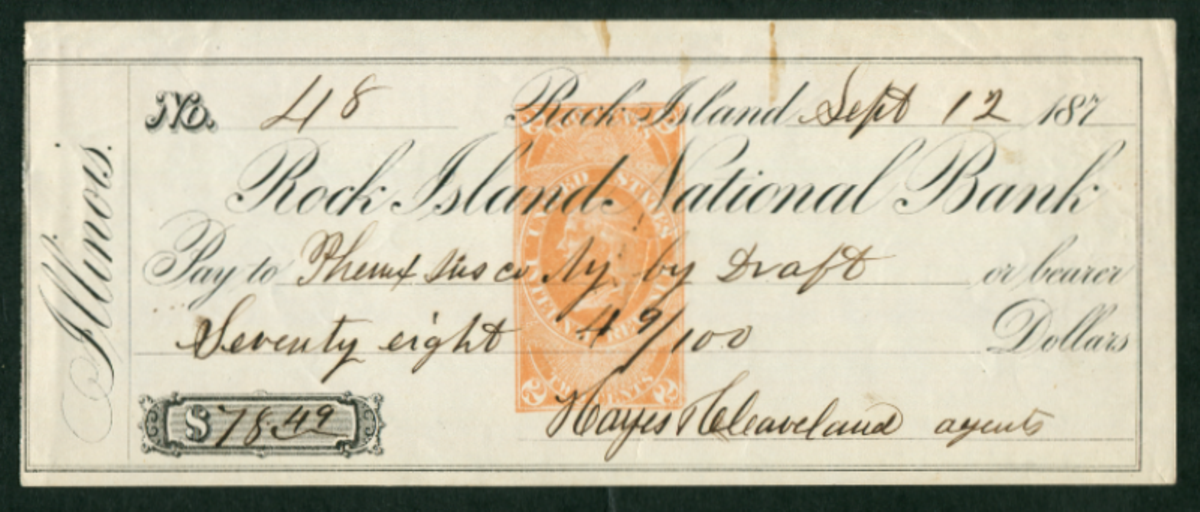 Illinois.
No. 48 Rock Island Sept 12 187
Rock Island National Bank
Pay to Phenix Ins co Ny by Draft or bearer
Seventy eight 49/100 Dollars
$78.49
Hayes & Cleaveland agents
UNITED STATES
INTERNAL REVENUE
TWO CENTS
2 2